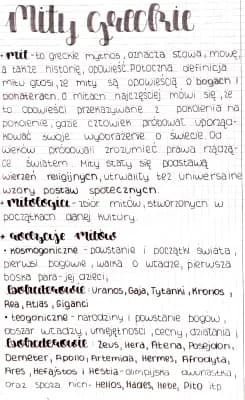 Mity greckie
• mit - to greckie mythos, oznacza słowa, mowę,
a także historię, opowieść. Potoczna definicja
mitu głosi, że mity są opowieścią o bogach i
bohaterach. O mitach najczęściej mówi się, że
to opowieści przekazywane z pokolenia na
pokolenie, gdzie człowiek próbował uporząd-
kować swoje wyobrażenie o świecie. Od
wieków próbowali zrozumieć prawa rządzą-
ce światem. Mity stały się podstawą
wierzeń religijnych, utrwaliły też uniwersalne
wzory postaw społecznych.
• mitologia - zbiór mitów, stworzonych w
początkach danej kultury.
• rodzaje mitów
• kosmogoniczne - powstanie i początki świata,
pierwsi bogowie, walka o władzę, pierwsza
boska para - jej dzieci,
Bohaterowie: Uranos, Gaja, Tytanki, Kronos,
Rea, Atlas, Giganci
• teogoniczne - narodziny i powstanie bogów,
obszar władzy, umiejętności, cechy, działania
Bohaterowie: Zeus, Hera, Atena, Posejdon,
Demeter, Apollo, Artemida, Hermes, Afrodyta,
Ares, Hefajstos i Hestia - olimpijska dwunastka,
oraz spoza nich - Helios, Hades, Hebe, Pito itp.